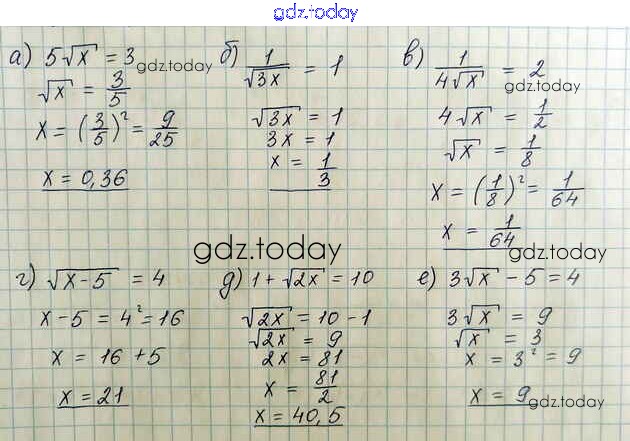 gdz.today
а) 5√x = 3
√x = 3/5
x = (3/5)² = 9/25
x = 0,36
gdz.today
б) 1/√3x = 1
√3x = 1
3x = 1
x = 1/3
в) 1/4√x = 2
gdz.today
4√x = 1/2
√x = 1/8
x = (1/8)² = 1/64
x = 1/64
gdz.today
gdz.today
г) √x-5 = 4
x-5 = 4² = 16
x = 16 + 5
x = 21
д) 1 + √2x = 10
√2x = 10 - 1
√2x = 9
2x = 81
x = 81/2
x = 40,5
е) 3√x - 5 = 4
3√x = 9
√x = 3
x = 3² = 9
x = 9
gdz.today